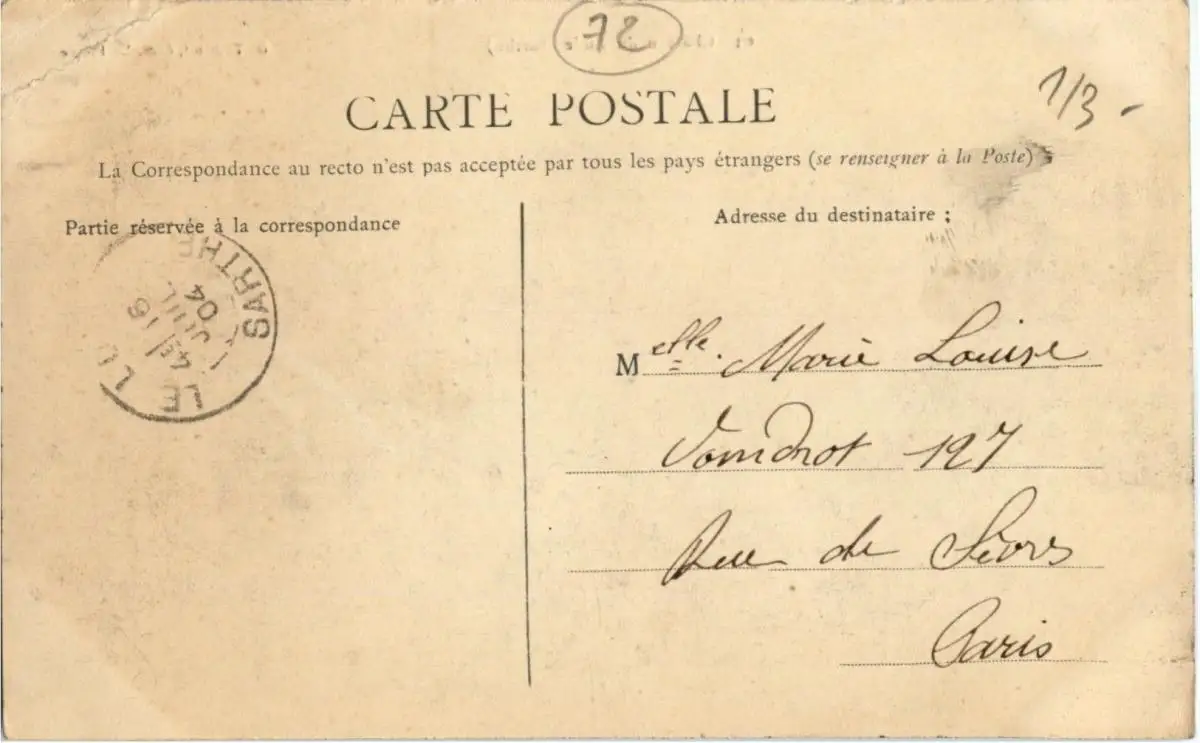 72
1/3 -
CARTE POSTALE
La Correspondance au recto n'est pas acceptée par tous les pays étrangers (se renseigner à la Poste)
Partie réservée à la correspondance
SARTHE
16
JUIL
04
LE
Adresse du destinataire ;
Melle. Marie Louise
127
Rue de Sèvres
Paris